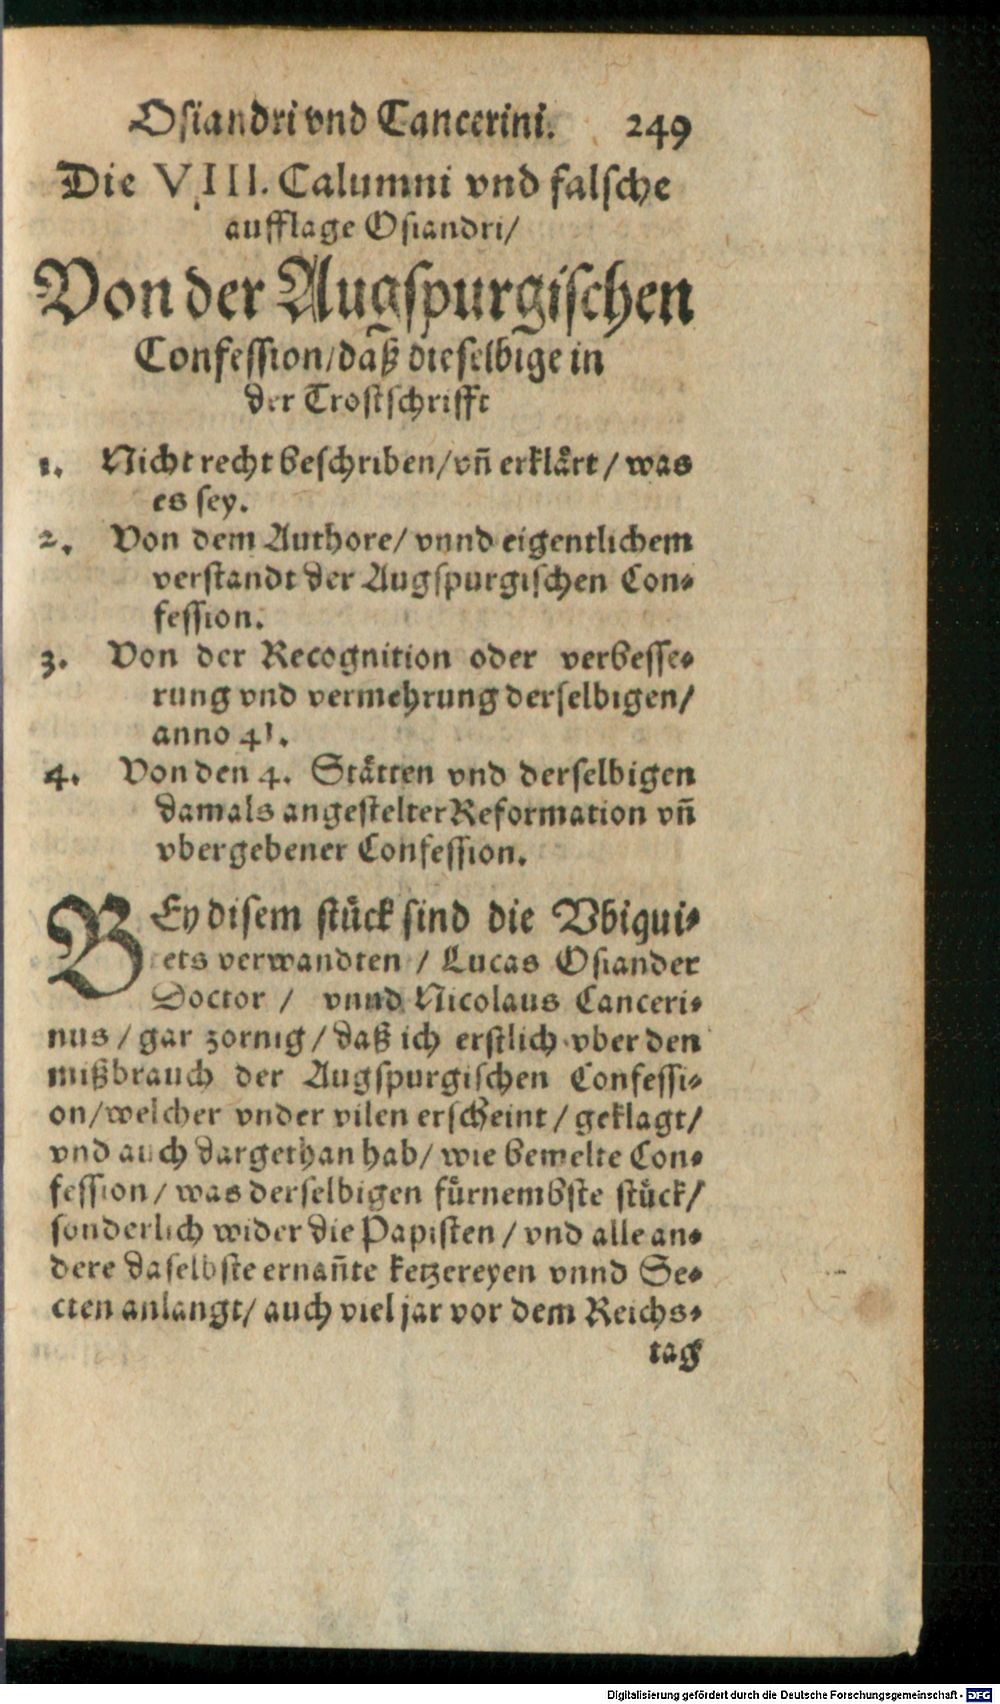 Osiandri vnd Cancerini. 249
Die VIII. Calumni vnd falsche
aufflage Osiandri/
Von der Augspurgischen
Confession/daß dieselbige in
der Trostschrifft
1. Nicht recht beschriben/vn̄ erklaͤrt/was
es sey.
2. Von dem Authore/ vnnd eigentlichem
verstandt der Augspurgischen Con⸗
fession.
3. Von der Recognition oder verbesse⸗
rung vnd vermehrung derselbigen/
anno 41.
4. Von den 4. Staͤtten vnd derselbigen
damals angestelter Reformation vn̄
vbergebener Confession.
BEy disem stuͤck sind die Vbiqui⸗
ets verwandten / Lucas Osiander
Doctor / vnnd Nicolaus Canceri⸗
nus / gar zornig / daß ich erstlich vber den
mißbrauch der Augspurgischen Confessi⸗
on/welcher vnder vilen erscheint / geklagt/
vnd auch dargethan hab/ wie bemelte Con⸗
fession / was derselbigen fuͤrnembste stuͤck/
sonderlich wider die Papisten / vnd alle an⸗
dere daselbste ernan̄te ketzereyen vnnd Se⸗
cten anlangt/ auch viel jar vor dem Reichs⸗
tag
Digitalisierung gefördert durch die Deutsche Forschungsgemeinschaft - DFG